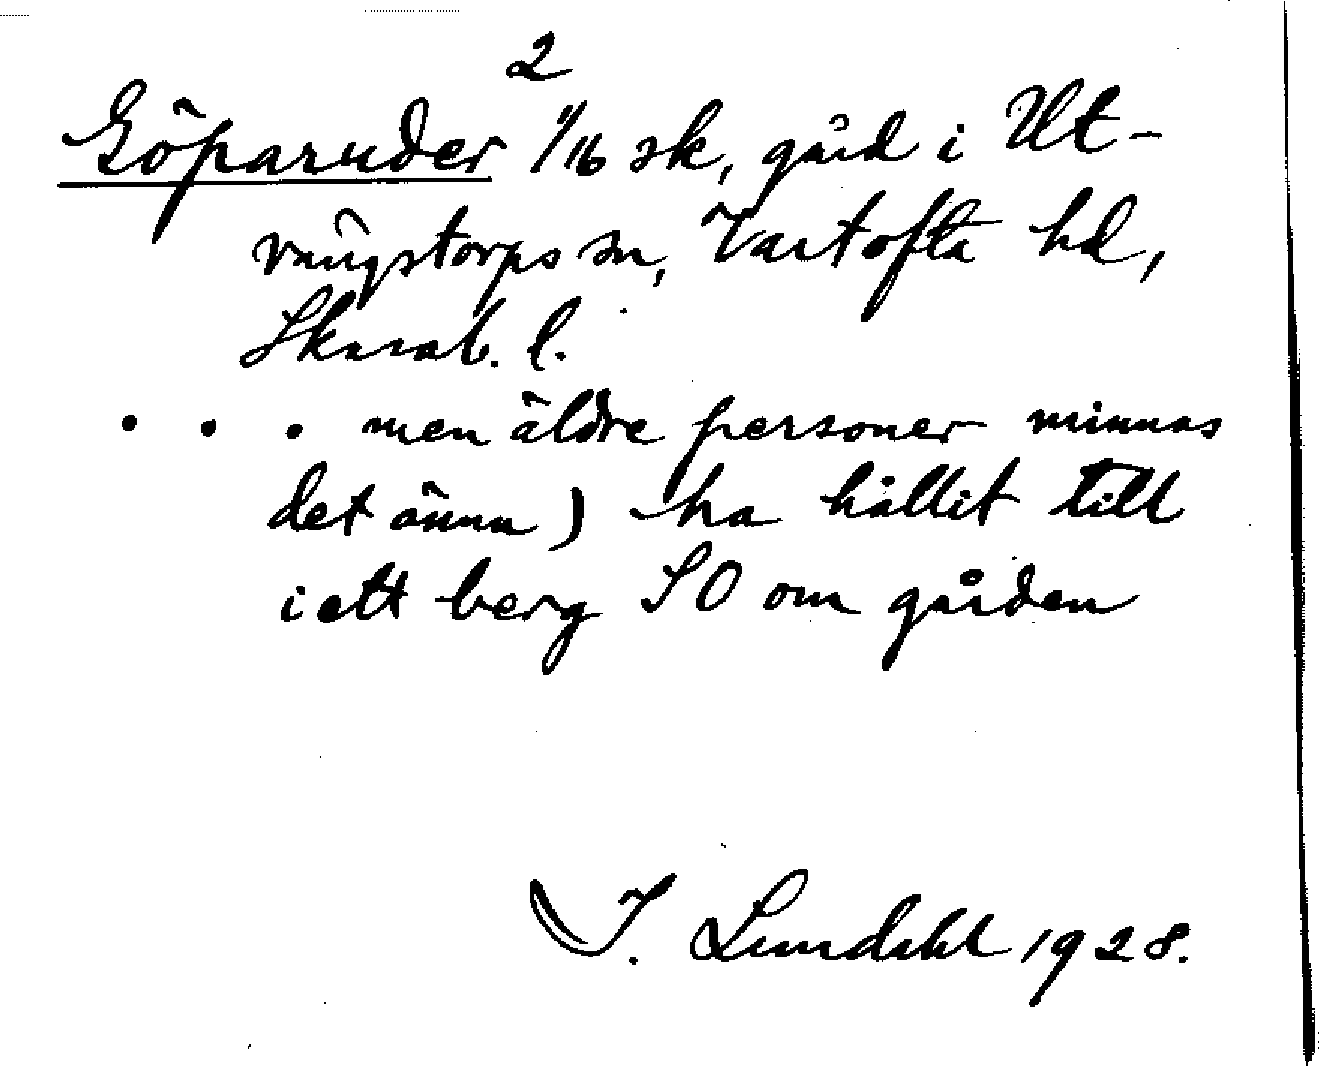 2
Göparuder 1/16 sk, gård i Ut-
vängstorps sn, Vartofta hd,
Skarab. l.
. . . men äldre personer minnas
det ännu) ha hållit till
i ett berg SO om gården
I. Lundahl 1928.